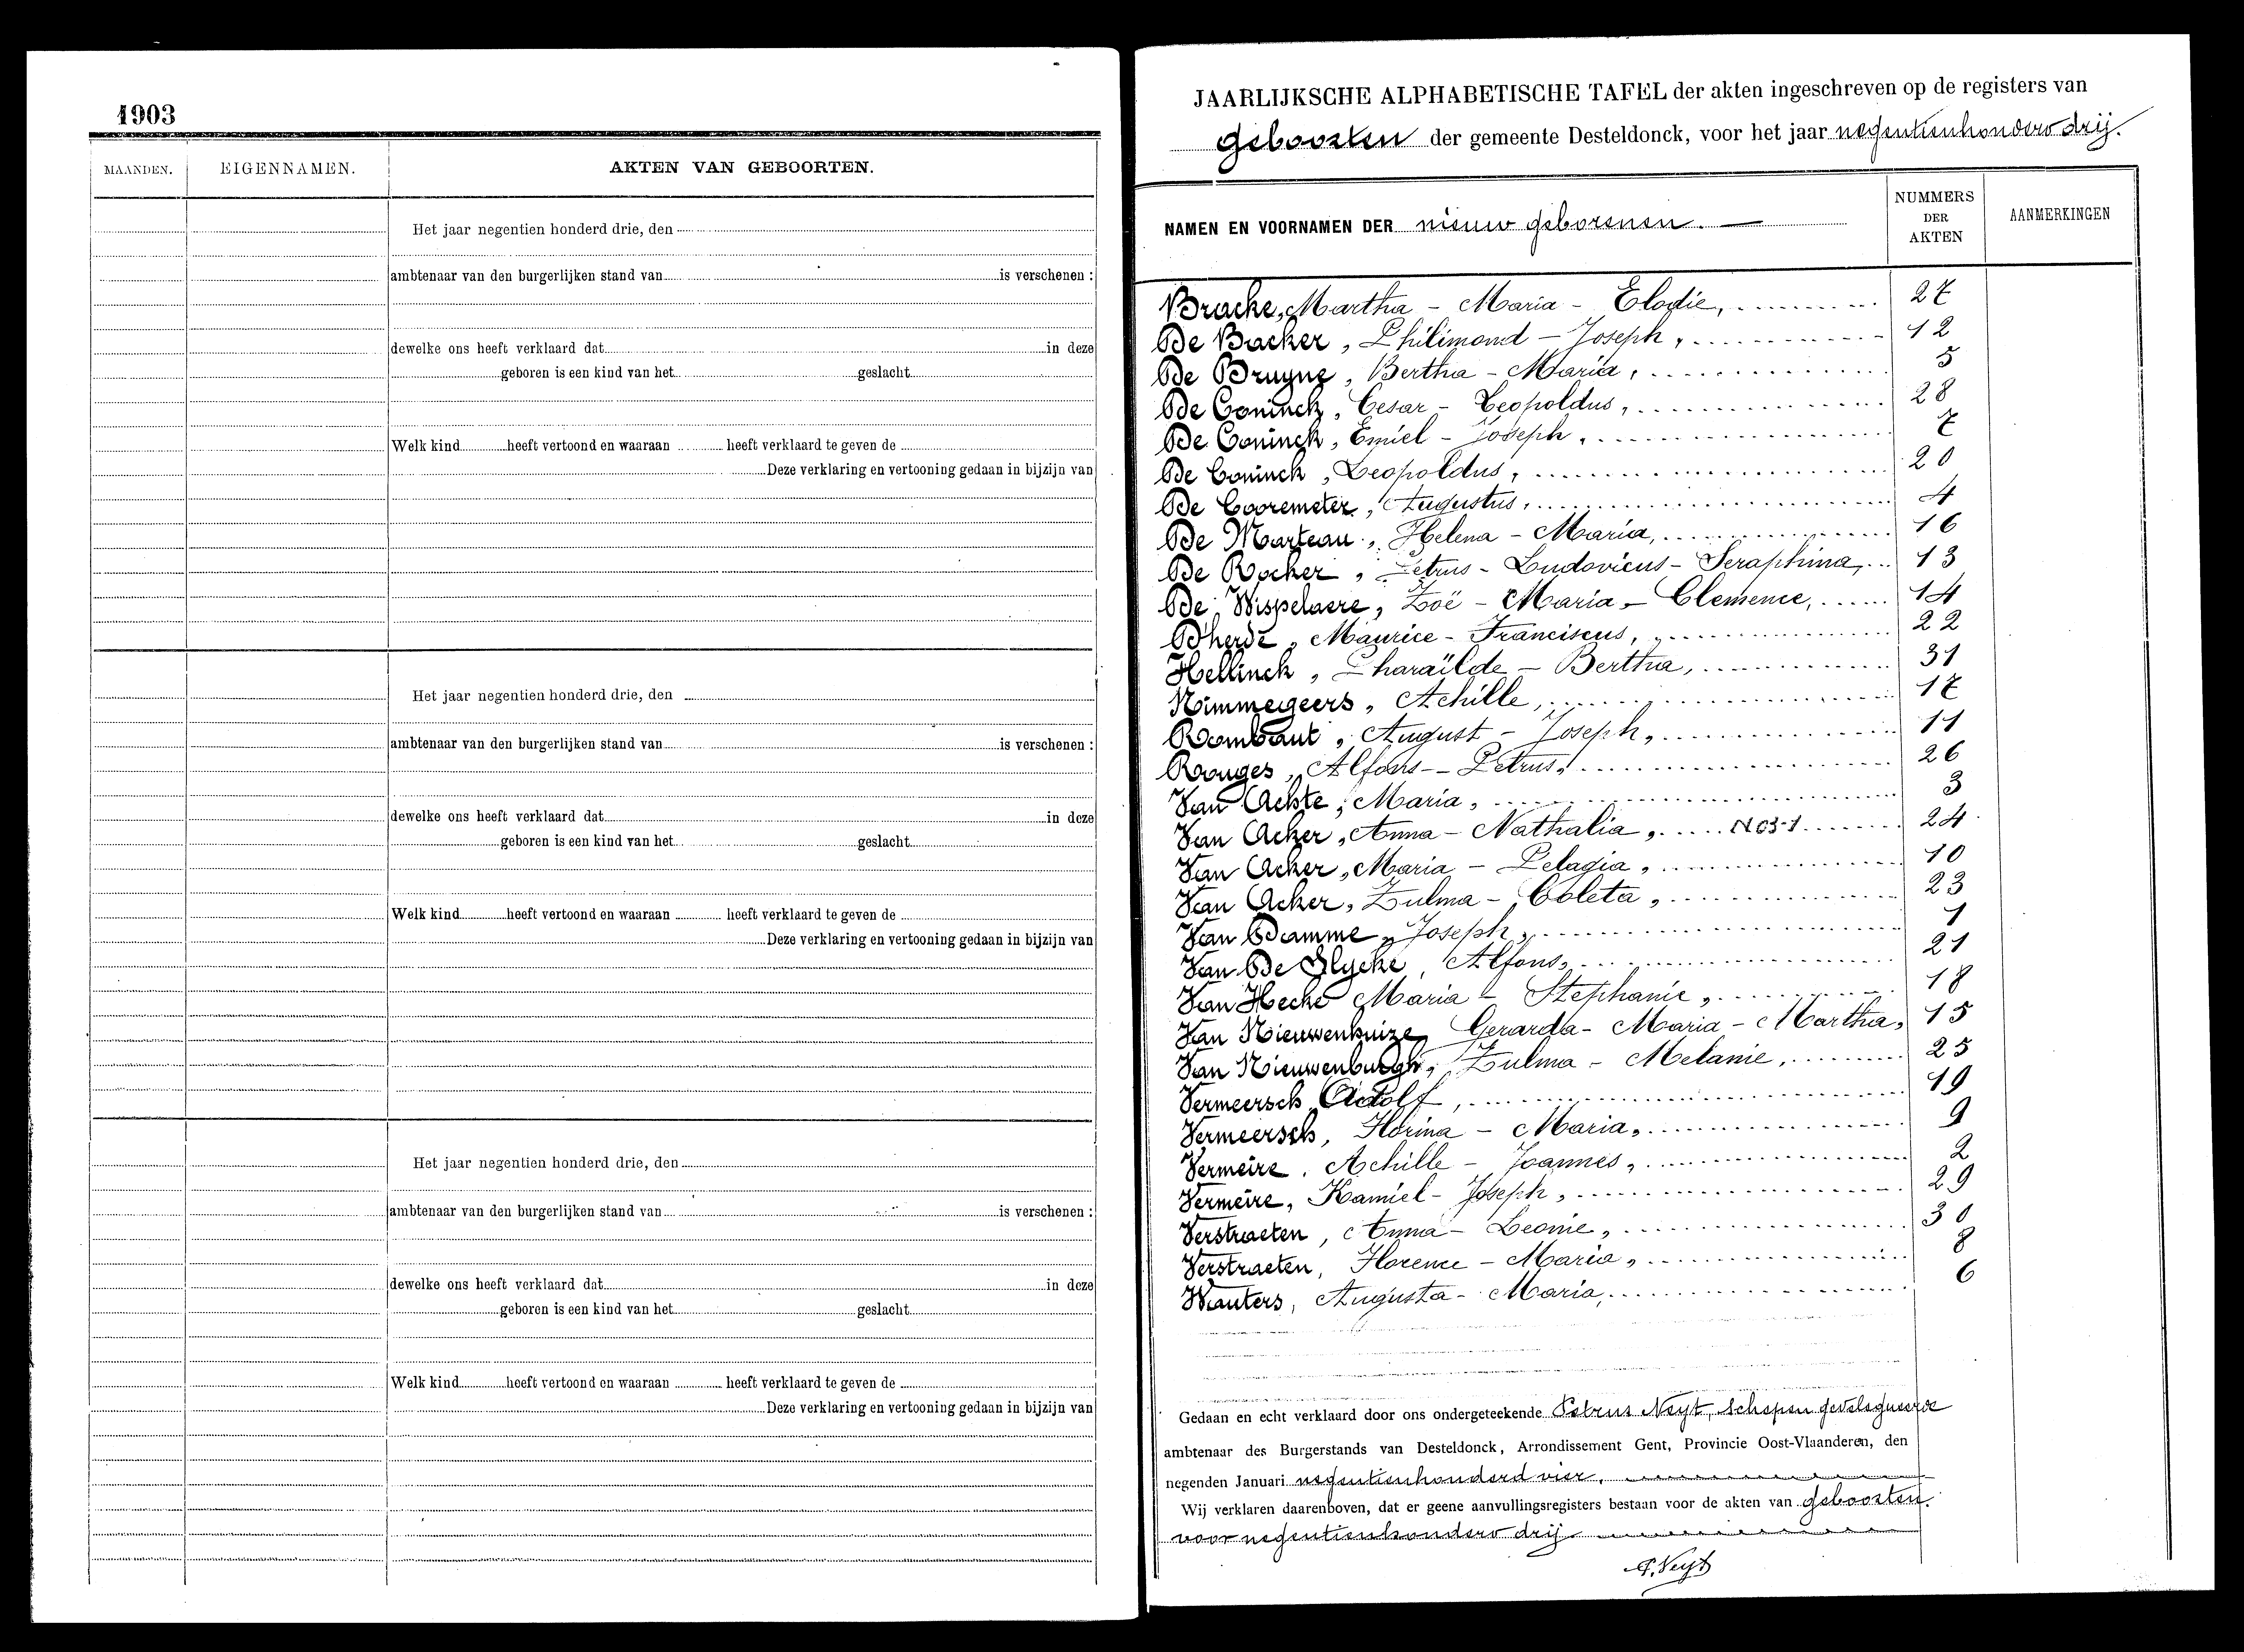 1903
MAANDEN. EIGENNAMEN. AKTEN VAN GEBOORTEN.
Het jaar negentien honderd drie, den
ambtenaar van den burgerlijken stand van is verschenen :
dewelke ons heeft verklaard dat in deze
geboren is een kind van het geslacht
Welk kind heeft vertoond en waaraan heeft verklaard te geven de
Deze verklaring en vertooning gedaan in bijzijn van
Het jaar negentien honderd drie, den
ambtenaar van den burgerlijken stand van is verschenen :
dewelke ons heeft verklaard dat in deze
geboren is een kind van het geslacht
Welk kind heeft vertoond en waaraan heeft verklaard te geven de
Deze verklaring en vertooning gedaan in bijzijn van
Het jaar negentien honderd drie, den
ambtenaar van den burgerlijken stand van is verschenen :
dewelke ons heeft verklaard dat in deze
geboren is een kind van het geslacht
Welk kind heeft vertoond en waaraan heeft verklaard te geven de
Deze verklaring en vertooning gedaan in bijzijn van
JAARLIJKSCHE ALPHABETISCHE TAFEL der akten ingeschreven op de registers van
geboorten der gemeente Desteldonck, voor het jaar negentienhonderd drij.
NAMEN EN VOORNAMEN DER nieuw geborenen. NUMMERS DER AKTEN AANMERKINGEN
Bracke, Martha - Maria - Elodie, 27
De Backer, Philimond - Joseph, 12
De Bruyne, Bertha - Maria, 5
De Coninck, Cesar - Leopoldus, 28
De Coninck, Emiel - Joseph, 7
De Coninck, Leopoldus, 20
De Cooremeter, Augustus, 4
De Marteau, Helena - Maria, 16
De Rocker, Petrus - Ludovicus - Seraphina, 13
De Wispelaere, Zoë - Maria - Clemence, 14
D'herde, Maurice - Franciscus, 22
Hellinck, Pharaïlde - Bertha, 31
Nimmegeers, Achille, 17
Rombaut, August - Joseph, 11
Rouges, Alfons - Petrus, 26
Van Ackte, Maria, 3
Van Acker, Anna - Nathalia, N 63-1 24
Van Acker, Maria - Pelagia, 10
Van Acker, Zulma - Coleta, 23
Van Damme, Joseph, 1
Van De Slycke, Alfons, 21
Van Hecke Maria - Stephanie, 18
Van Nieuwenhuize, Gerarda - Maria - Martha, 15
Van Nieuwenburgh, Zulma - Melanie, 25
Vermeersch Adolf, 19
Vermeersch, Florina - Maria, 9
Vermeire, Achille - Joannes, 2
Vermeire, Kamiel - Joseph, 29
Verstraeten, Anna - Leonie, 30
Verstraeten, Florence - Maria, 8
Wauters, Augusta - Maria, 6
Gedaan en echt verklaard door ons ondergeteekende Petrus Neyt, Schepen gedelegueerde
ambtenaar des Burgerstands van Desteldonck, Arrondissement Gent, Provincie Oost-Vlaanderen, den
negenden Januari negentienhonderd vier.
Wij verklaren daarenboven, dat er geene aanvullingsregisters bestaan voor de akten van geboorten
voor negentienhonderd drij
P. Neyt